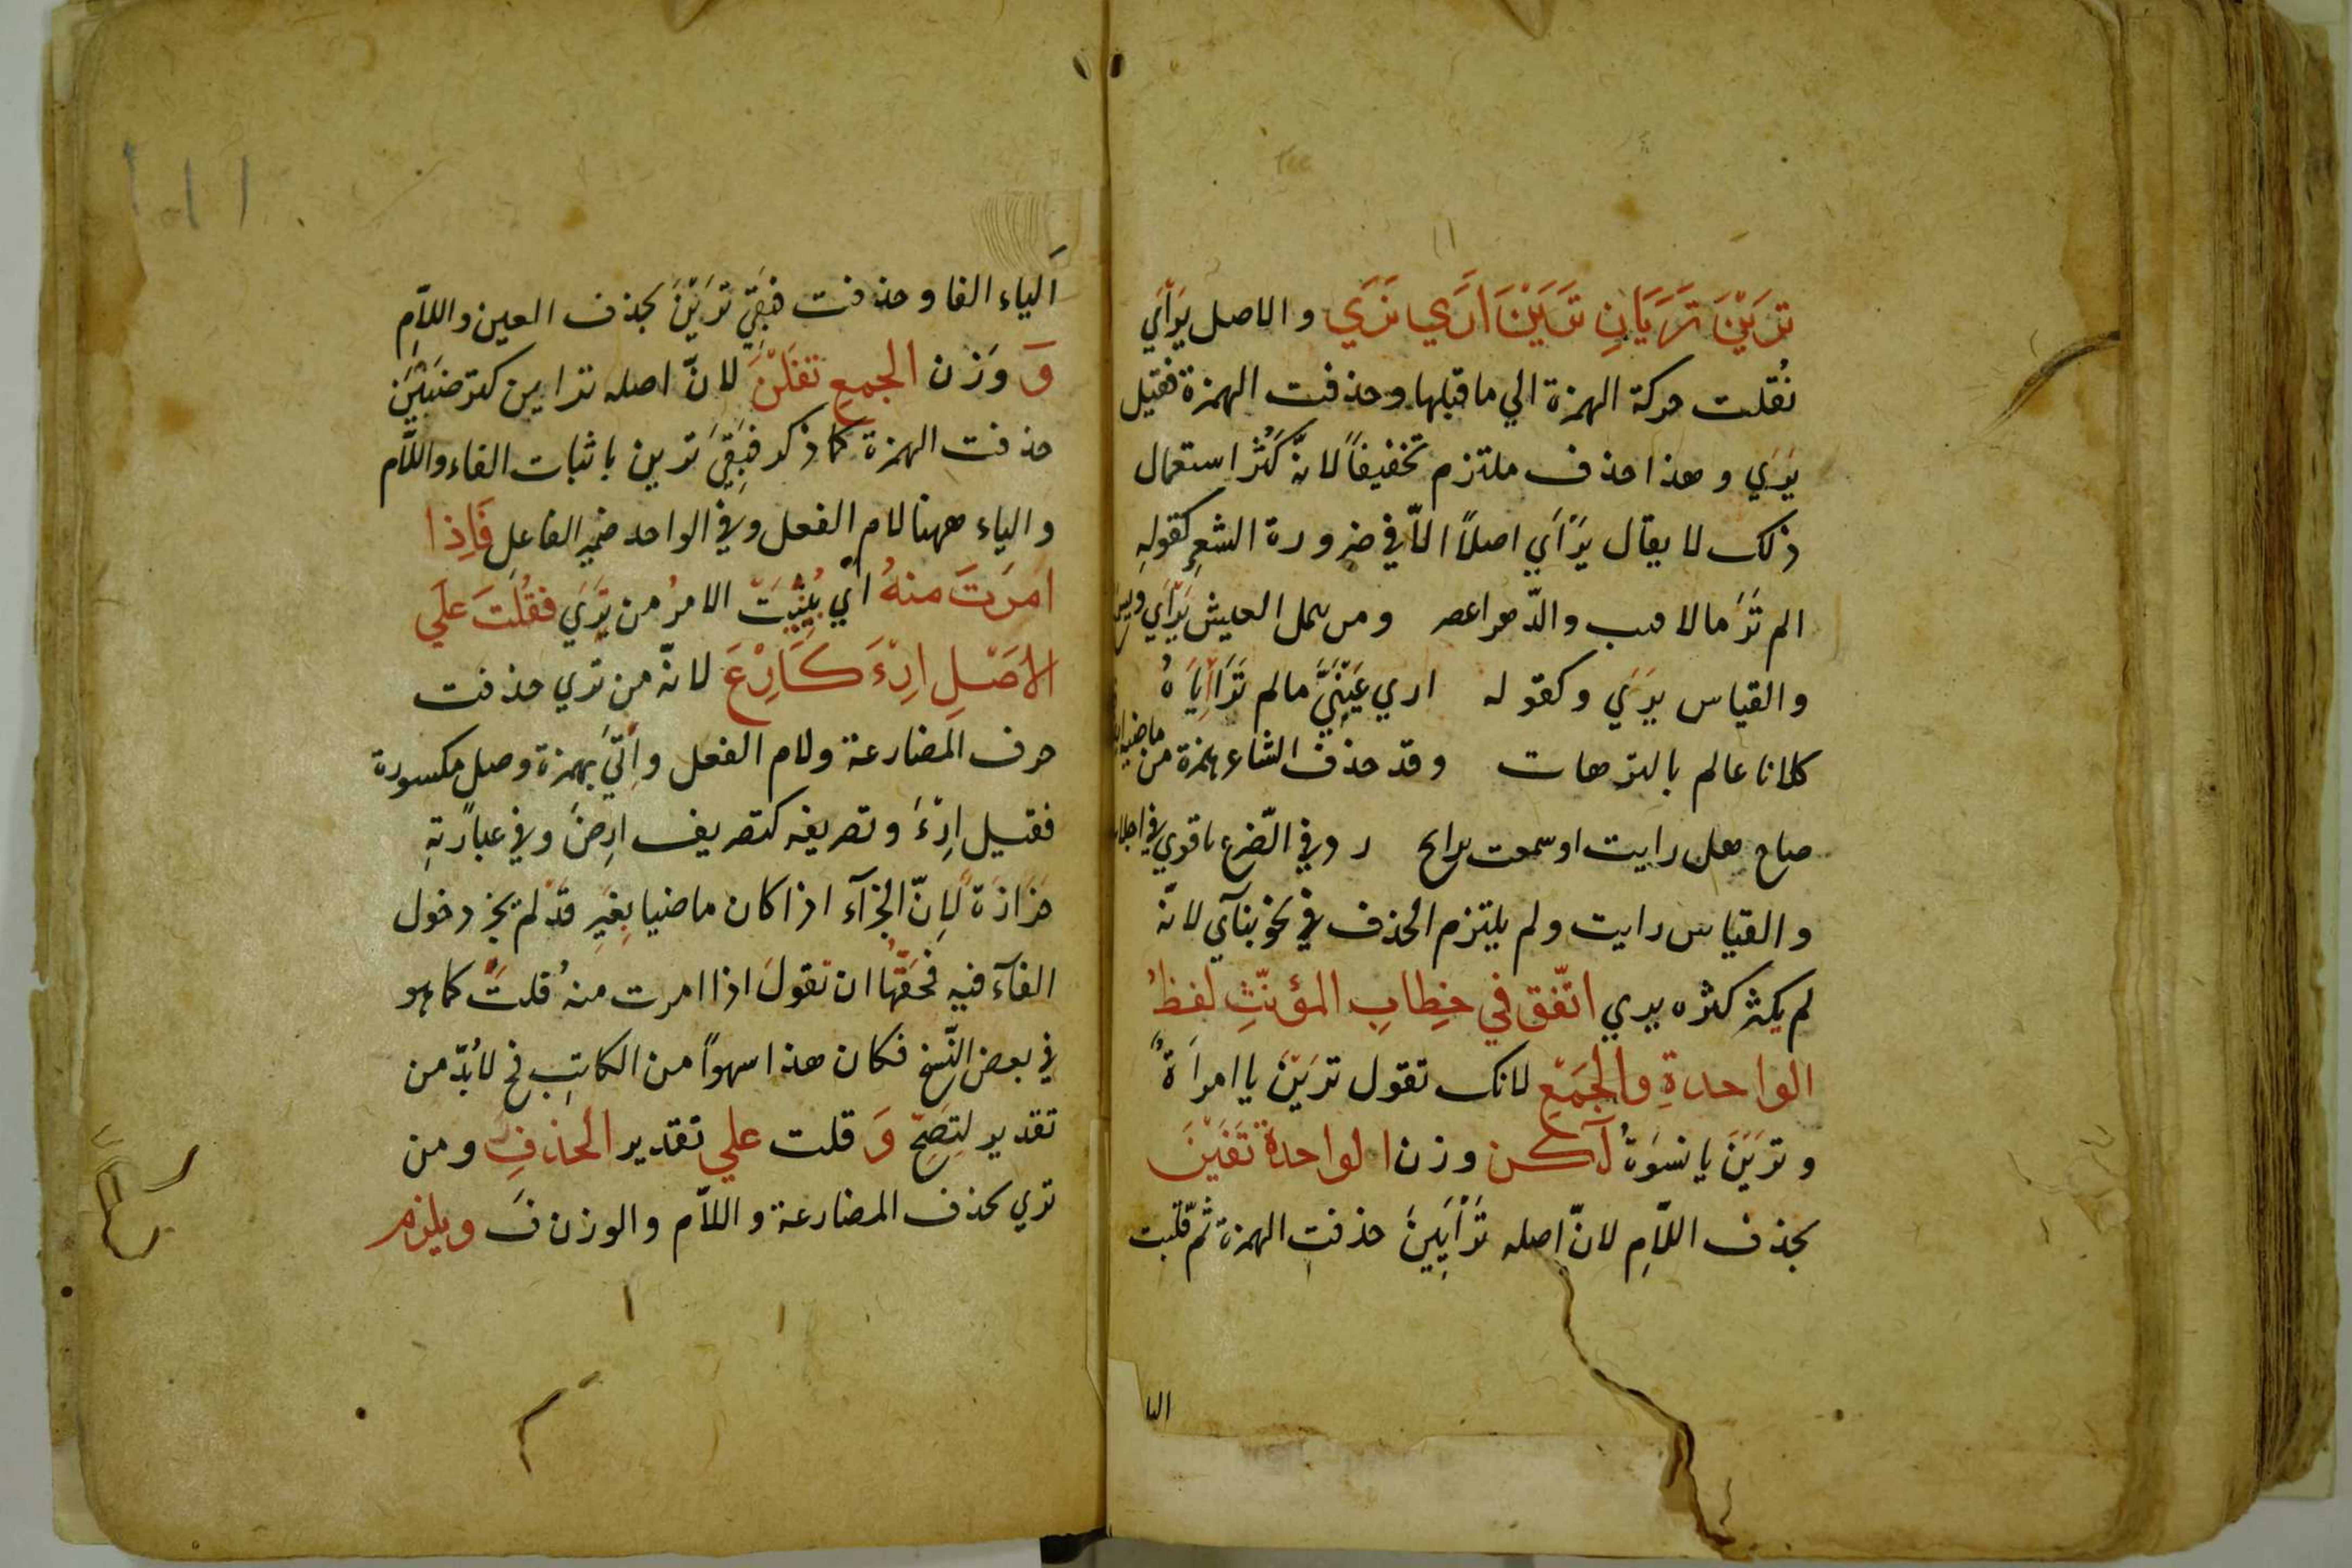 تَرَيْنَ تَرَيَانِ تَرَيْنَ اَرَي نَرَي والاصل يَرْأَي
نُقلت حركة الهمزة الي ما قبلها وحذفت الهمزة فقيل
يَرَي وهذا حذف ملتزم تخفيفاً لانّه كَثُرَ استعمال
ذلك لا يقال يَرْأَي اصلاً الاّ في ضرورة الشعرِ كقولهِ
الم تَرَ ما لاقيت والدّهر اعصر ومن يتمل العيش يَرْأَي ويسمع
والقياس يَرَي وكقوله اري عَيْنَيَّ مالم تَرْأَيَاهُ
كلانا عالم بالترهات وقد حذف الشاعر همزة من ماضيه
صاح هل رايت او سمعت براع رد في الضّرع ما قري في
والقياس رايت ولم يلتزم الحذف في نحو ينآي لانّه
لم يكثر كثره يري اتّفق في خِطابِ المؤنّثِ لفظُ
الواحدةِ والجَمْعِ لانك تقول تَرَيْنَ يا امرأةُ
وتَرَيْنَ يا نسوةُ لكن وزن الواحدة تَفَيْنَ
بحذف اللّامِ لانّ اصله تَرْأَيِينَ حذفت الهمزة ثمّ قلبت
اليا
اَلياء الفا وحذفت فبَقِيَ تَرَيْنَ بحذف العين واللاّمِ
وَ وَزن الجمعِ تَفَلْنَ لانّ اصله ترايين كترضَيْنَ
حذفت الهمزة كما ذكر فبَقِيَ ترين باثبات الفاء واللاّم
والياء ههنا لام الفعل وفي الواحد ضمير الفاعلِ فَاِذا
امَرتَ منهُ ايْ بُنِيَتْ الامرُ من تَرَي فقُلتَ علَي
الاصَلِ اِرْءَ كَاِرْعَ لانّه من تري حذفت
حرف المضارعة ولام الفعل واُتيَ بهمزة وصل مكسورة
فقيل اِرْءَ وتصريفه كتصريف اِرضَ وفي عبارتهِ
حزازة لِانّ الجزآء اذا كان ماضيا بغيرِ قد لم يجز دخول
الفآء فيه فحقّها ان تقولَ اذا امرت منهُ قلتَ كما هو
في بعض النّسخ فكان هذا سهواً من الكاتبِ فح لابُدّ من
تقدير لِتَصِحّ وَ قلت علي تقدير الحذفِ ومن
تري بحذف المضارعة واللاّم والوزن فَ ويلزم